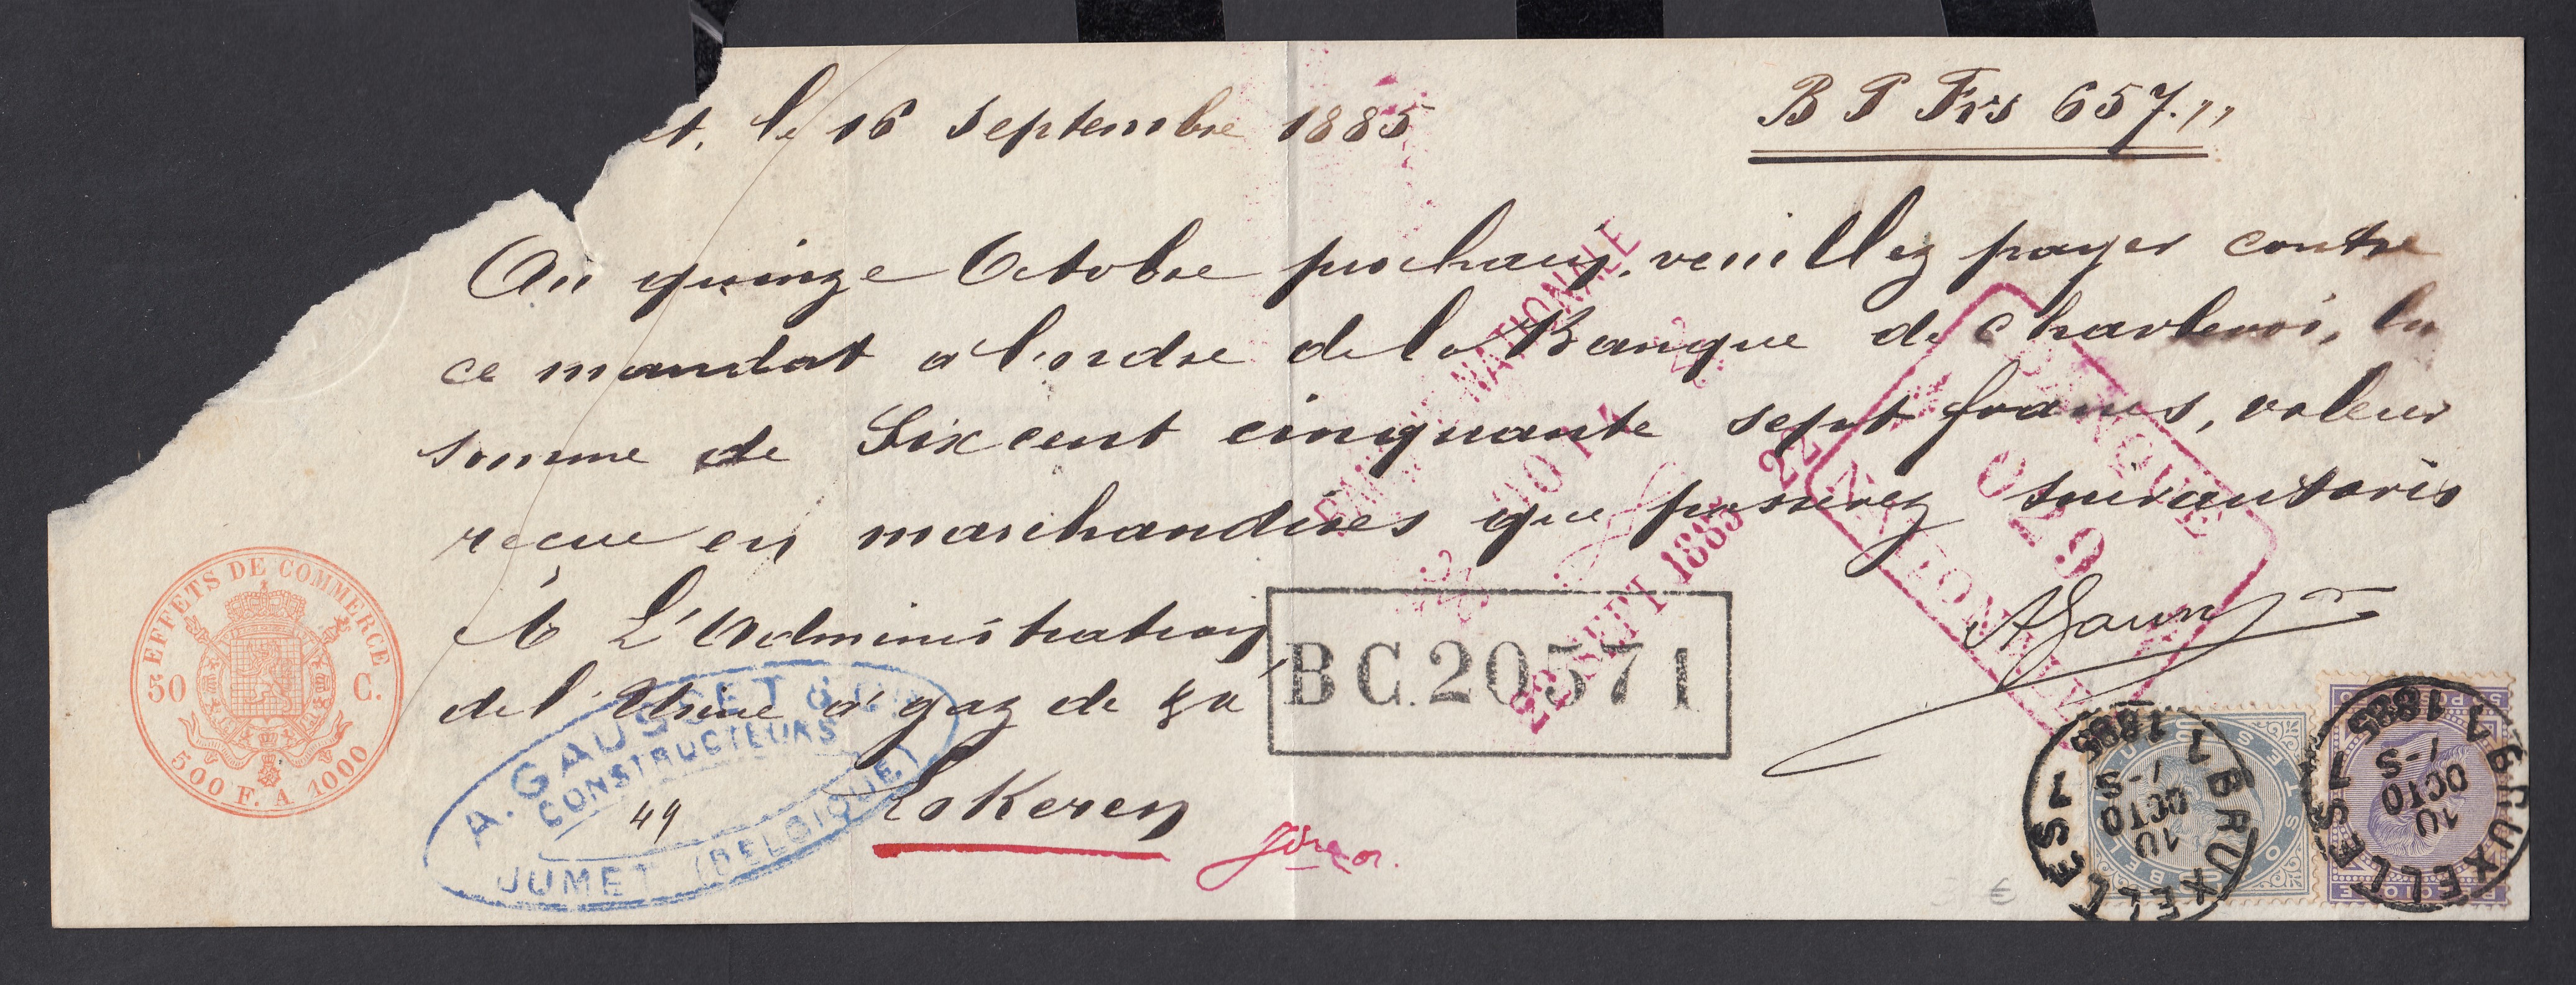 et, le 16 Septembre 1885
B P Frs 657.,,
Au quinze Octobre prochain, veuillez payer contre
ce mandat a l'ordre de la Banque de Charleroi, la
somme de Six cent cinquante sept francs, valeur
recue en marchandises que passerez suivant avis
A L'Administration
del'Usine a gaz de
Lokeren
49
EFFETS DE COMMERCE
50 C.
500 F. A 1000
A. GAUSSET & CIE
CONSTRUCTEURS
JUMET (BELGIQUE)
BC.20571
NATIONALE
22 SEPT 1885
BANQUE
NATIONALE
BRUXELLES 1
10
OCTO
7-S
1885
BRUXELLES 1
10
OCTO
7-S
1885
€